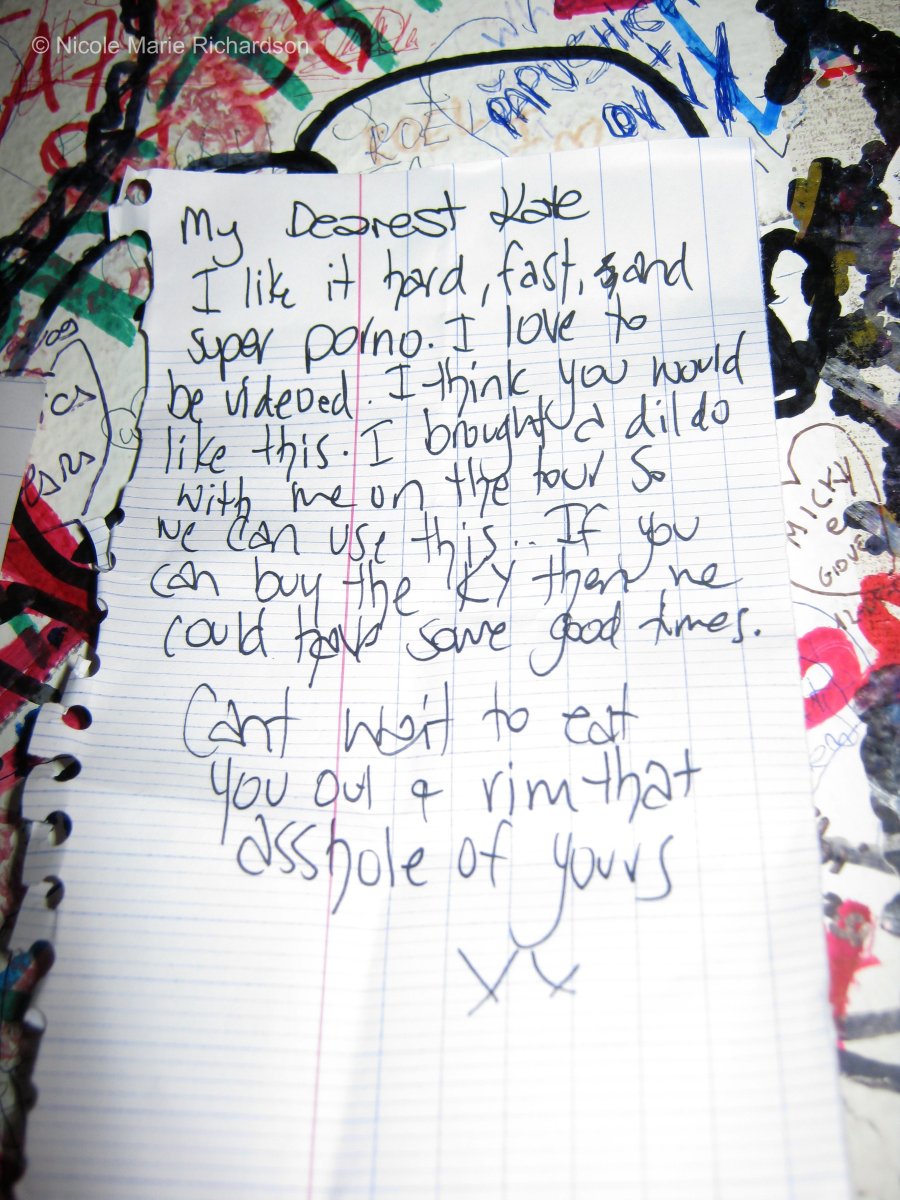 © Nicole Marie Richardson
PAPUSHKI
My Dearest Kate
I like it hard, fast, and
super porno. I love to
be videoed. I think you would
like this. I brought a dildo
with me on the tour so
we can use this.. If you
can buy the KY then we
could have some good times.
Cant wait to eat
you out & rim that
asshole of yours
xx
'09
MICKY
e
GIOVE